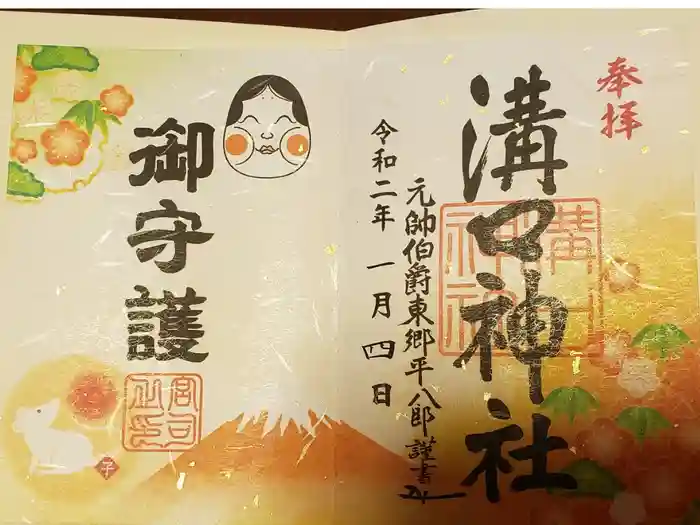 奉拝
溝口神社
元帥伯爵東郷平八郎謹書
令和二年 一月四日
御守護
宮司之印
子